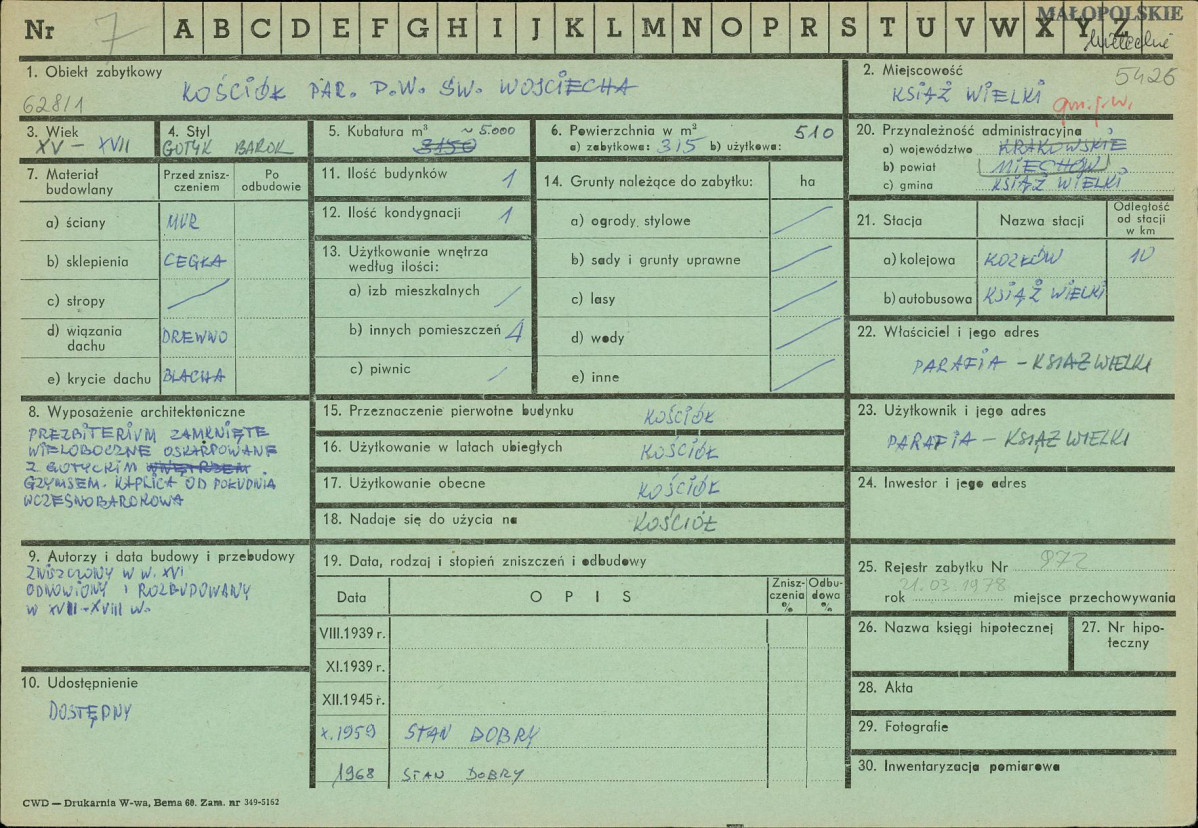 Nr 7 A B C D E F G H I J K L M N O P R S T U V W X Y Z
MAŁOPOLSKIE
5426
1. Obiekt zabytkowy
KOŚCIÓŁ PAR. P.W. ŚW. WOJCIECHA
628/1
2. Miejscowość
KSIĄŻ WIELKI
gm. j.w.
3. Wiek
XV - XVII
4. Styl
GOTYK BAROK
5. Kubatura m³ ~ 5.000
3150
6. Powierzchnia w m² 510
a) zabytkowa: 315 b) użytkowa:
20. Przynależność administracyjna
a) województwo KRAKOWSKIE
b) powiat MIECHÓW
c) gmina KSIĄŻ WIELKI
7. Materiał budowlany
Przed znisz-
czeniem
Po
odbudowie
a) ściany MUR
b) sklepienia CEGŁA
c) stropy
d) wiązania
dachu DREWNO
e) krycie dachu BLACHA
11. Ilość budynków 1
12. Ilość kondygnacji 1
13. Użytkowanie wnętrza
według ilości:
a) izb mieszkalnych
b) innych pomieszczeń 4
c) piwnic
14. Grunty należące do zabytku: ha
a) ogrody stylowe
b) sady i grunty uprawne
c) lasy
d) wody
e) inne
21. Stacja
Nazwa stacji
Odległość
od stacji
w km
a) kolejowa KOZŁÓW 10
b) autobusowa KSIĄŻ WIELKI
22. Właściciel i jego adres
PARAFIA - KSIĄŻ WIELKI
8. Wyposażenie architektoniczne
PREZBITERIUM ZAMKNIĘTE
WIELOBOCZNE OSKARPOWANE
Z GOTYCKIM WNĘTRZEM
GZYMSEM. KAPLICA OD POŁUDNIA
WCZESNOBAROKOWA
15. Przeznaczenie pierwotne budynku KOŚCIÓŁ
16. Użytkowanie w latach ubiegłych KOŚCIÓŁ
17. Użytkowanie obecne KOŚCIÓŁ
18. Nadaje się do użycia na KOŚCIÓŁ
23. Użytkownik i jego adres
PARAFIA - KSIĄŻ WIELKI
24. Inwestor i jego adres
9. Autorzy i data budowy i przebudowy
ZNISZCZONY W W. XVI
ODNOWIONY I ROZBUDOWANY
W XVII-XVIII W.
10. Udostępnienie
DOSTĘPNY
19. Data, rodzaj i stopień zniszczeń i odbudowy
Data
O P I S
Znisz-
czenia
%
Odbu-
dowa
%
VIII.1939 r.
XI.1939 r.
XII.1945 r.
X.1959 STAN DOBRY
1968 STAN DOBRY
25. Rejestr zabytku Nr 972
rok 21.03.1978 miejsce przechowywania
26. Nazwa księgi hipotecznej
27. Nr hipo-
teczny
28. Akta
29. Fotografie
30. Inwentaryzacja pomiarowa
CWD — Drukarnia W-wa, Bema 60. Zam. nr 349-5162